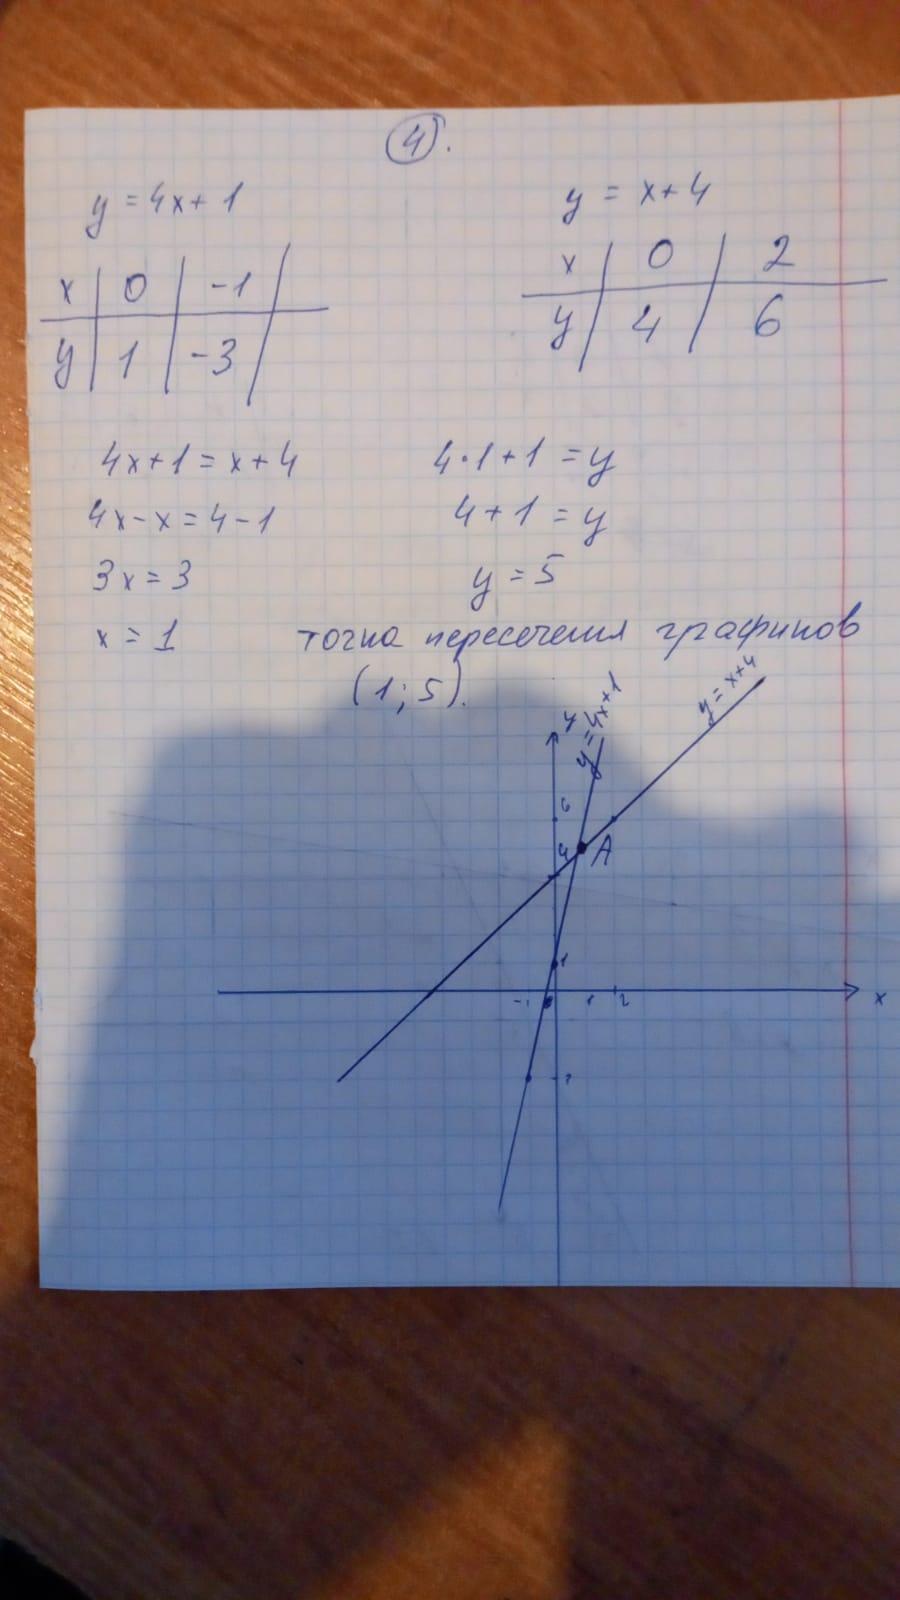 4).
y = 4x + 1
x | 0 | -1 |
y | 1 | -3 |
y = x + 4
x | 0 | 2
y | 4 | 6
4x + 1 = x + 4
4x - x = 4 - 1
3x = 3
x = 1
4·1 + 1 = y
4 + 1 = y
y = 5
точка пересечения графиков
(1; 5).
y
y = 4x + 1
y = x + 4
6
4
A
1
-1
1
2
x